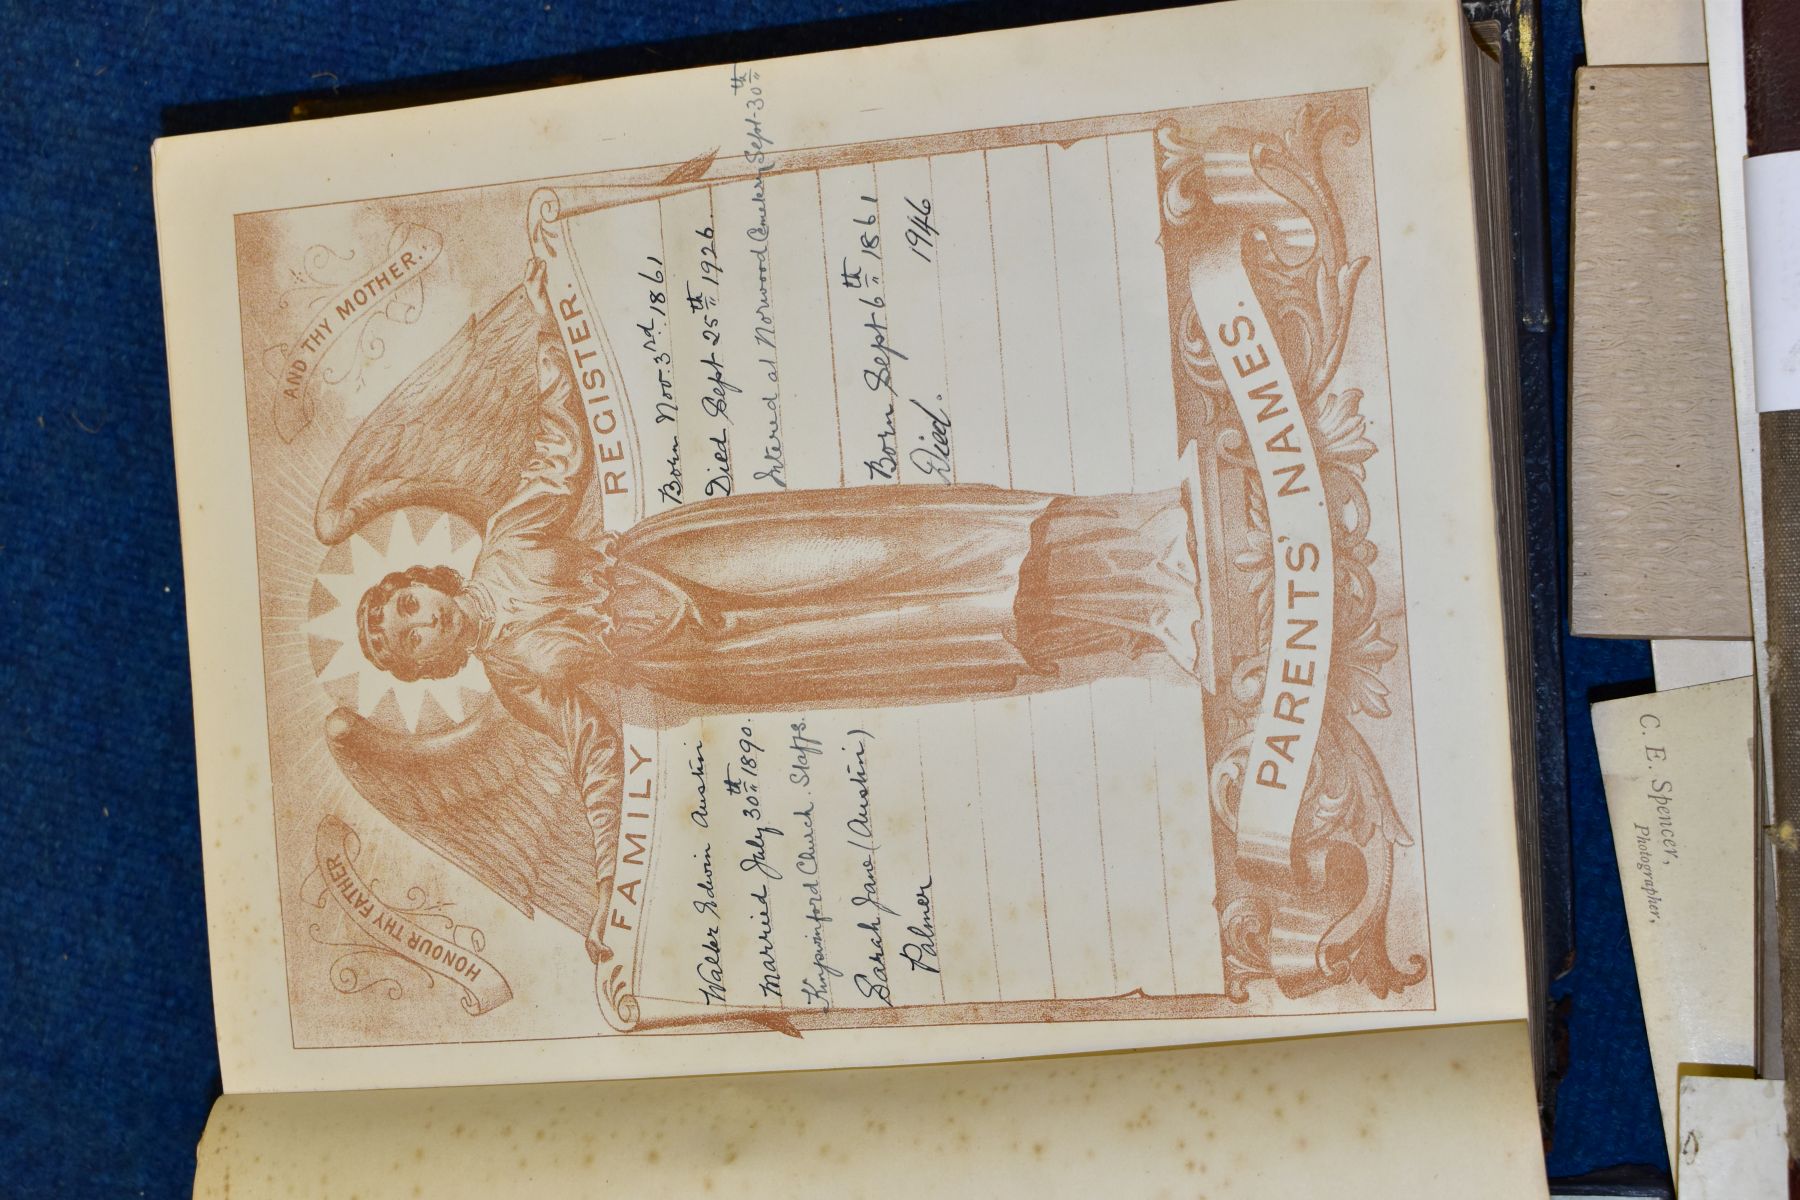 HONOUR THY FATHER
AND THY MOTHER.
FAMILY REGISTER.
Walter Edwin Austin
Married July 30th 1890.
Kingswinford Church. Staffs.
Sarah Jane (Austin)
Palmer
Born Nov. 3rd. 1861
Died Sept 25th 1926.
Intered at Norwood Cemetery Sept. 30th
Born Sept 6th 1861
Died. 1946
PARENTS' NAMES.
C. E. Spencer,
Photographer,